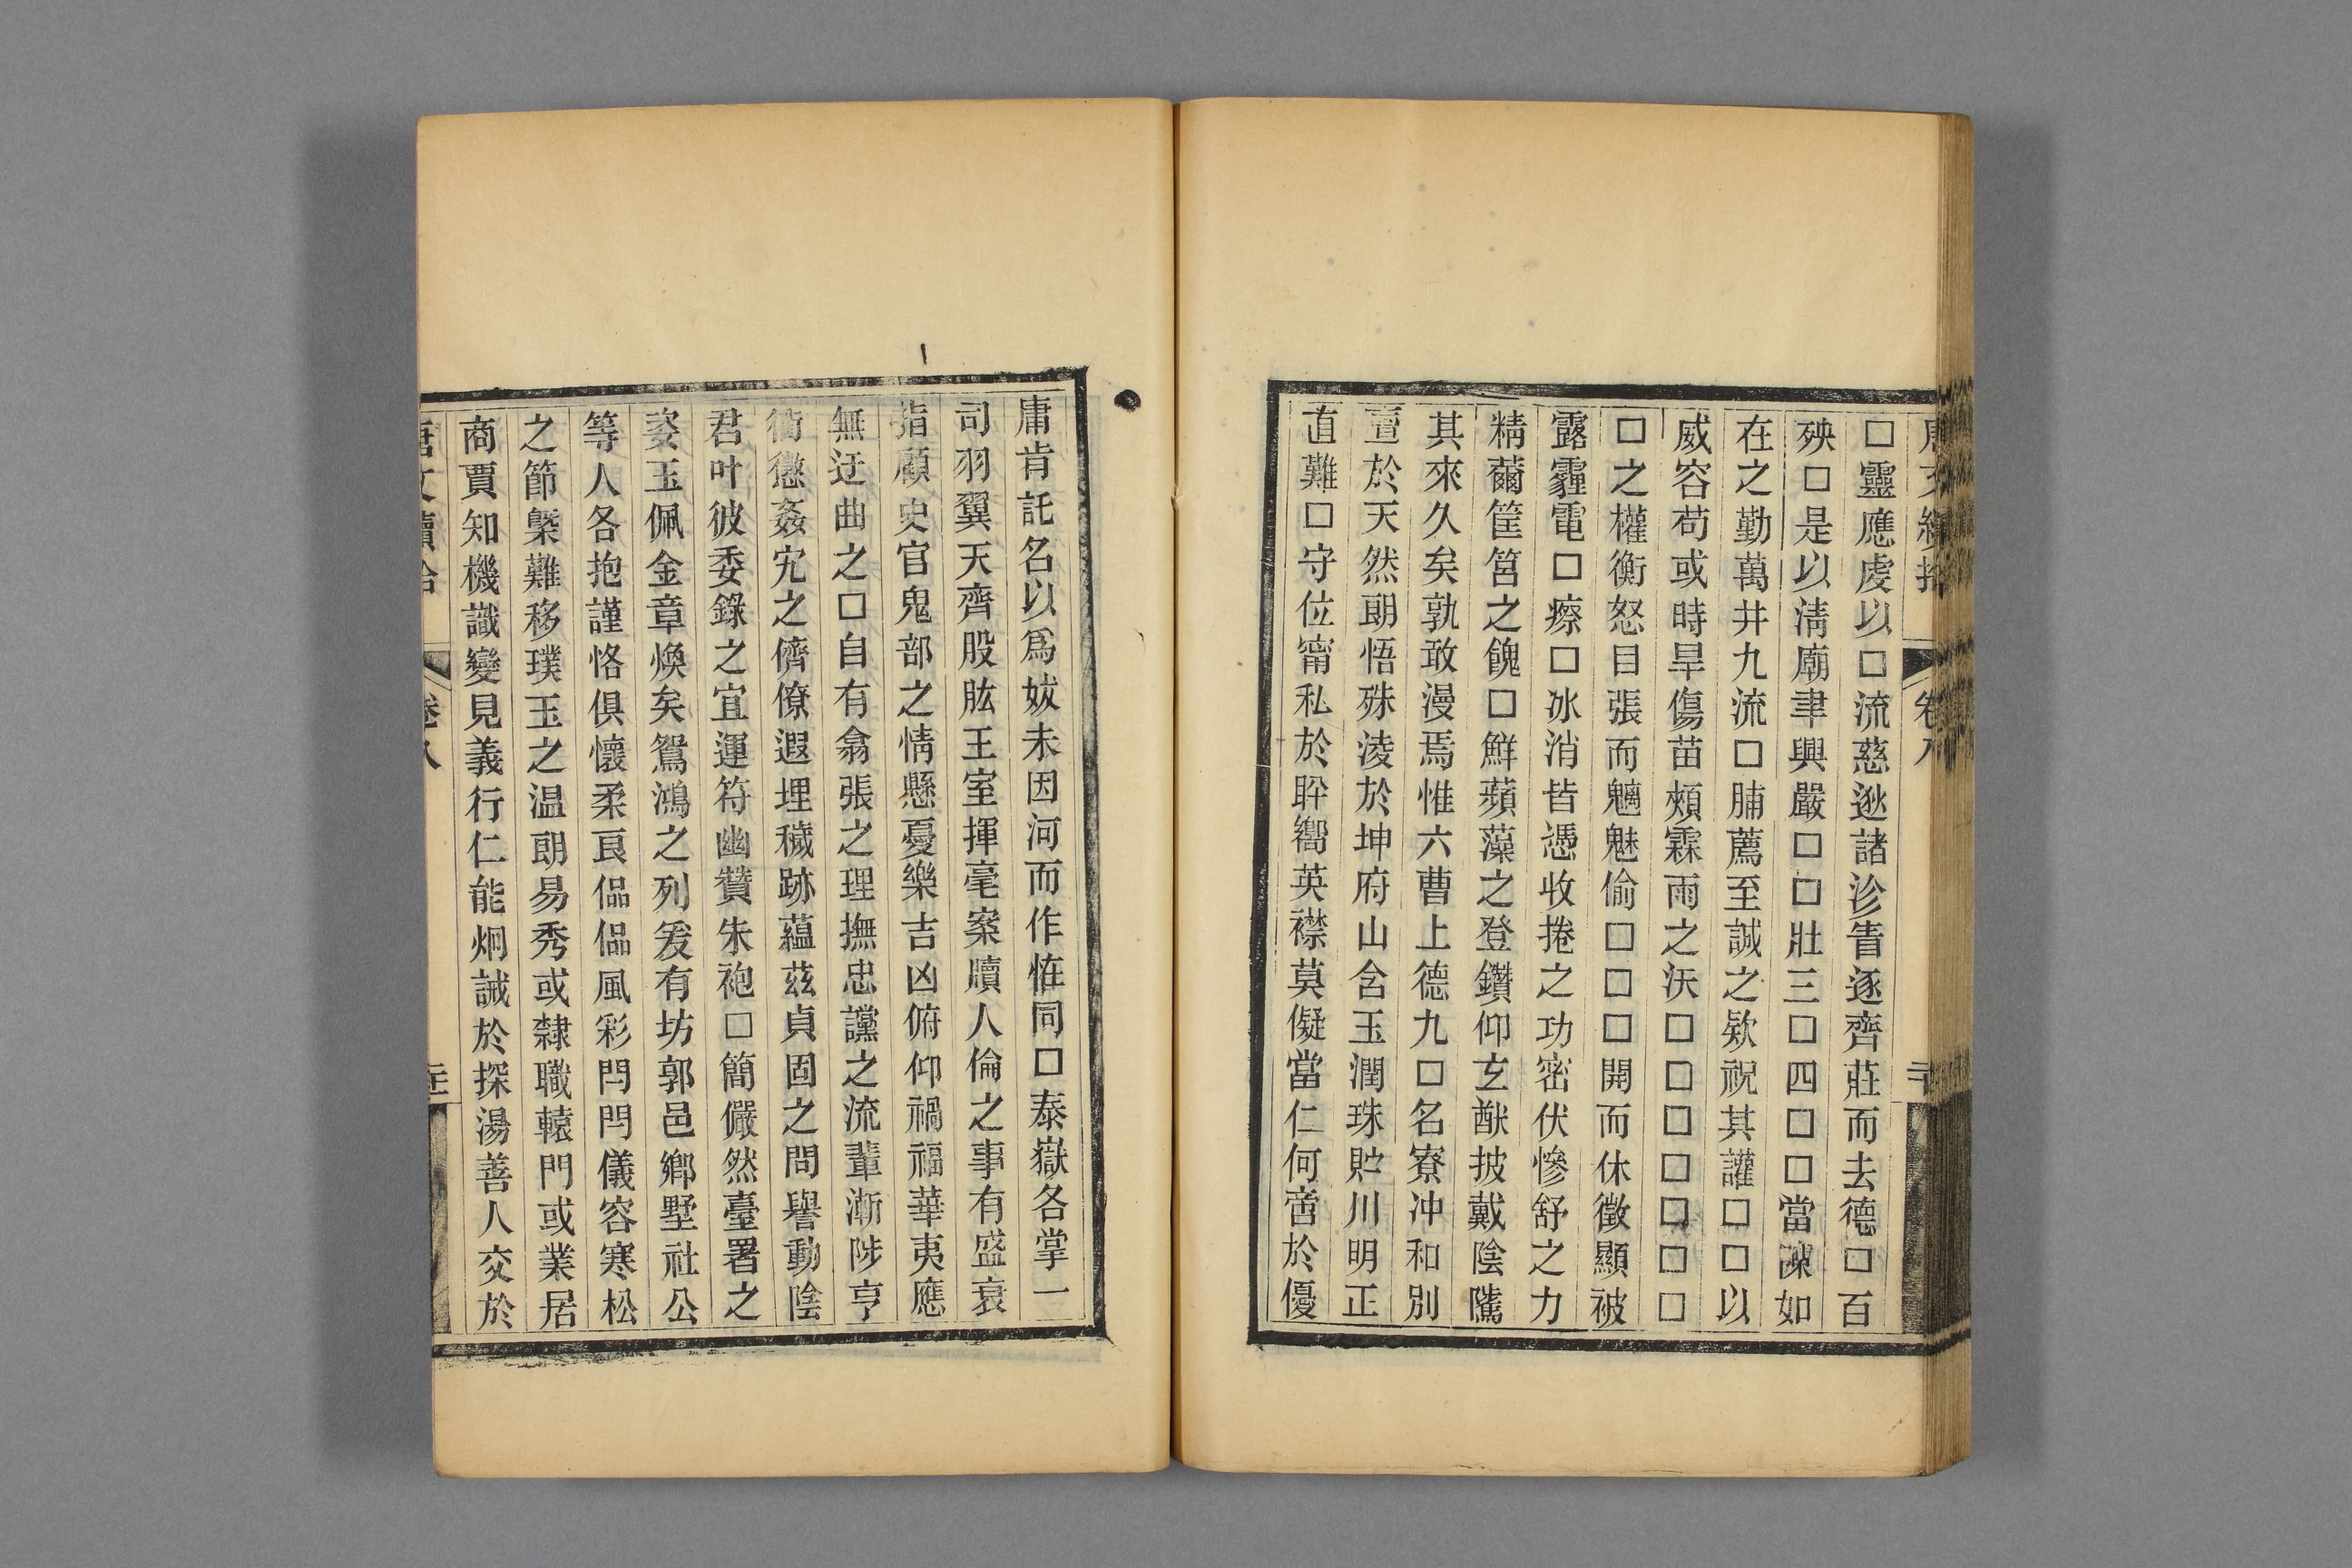 唐文續拾
卷八
□靈應虔以□流慈逖諸沴眚逐齊莊而去德□百
殃□是以淸廟聿興嚴□□壯三□四□□當諫如
在之勤萬井九流□脯薦至誠之欵祝其讙□□以
威容苟或時旱傷苗頰霖雨之沃□□□□□□□
□之權衡怒目張而魑魅偷□□□開而休徵顯被
露霾電□瘵□冰消皆憑收捲之功密伏慘舒之力
精薾筐筥之餽□鮮蘋藻之登鑽仰玄猷披戴陰隲
其來久矣孰敢漫焉惟六曹上德九□名寮冲和別
亶於天然朗悟殊淩於坤府山含玉潤珠貯川明正
直難□守位甯私於肸蠁英襟莫儗當仁何啻於優
庸肯託名以爲妭未因河而作恠同□泰嶽各掌一
司羽翼天齊股肱王室揮毫案牘人倫之事有盛衰
指顧史官鬼部之情懸憂樂吉凶俯仰禍福華夷應
無迂曲之□自有翕張之理撫忠讜之流輩漸陟亨
衢懲姦宄之儕僚遐埋穢跡蘊茲貞固之問譽動陰
君叶彼委錄之宜運符幽贊朱袍□簡儼然臺署之
姿玉佩金章煥矣鴛鴻之列爰有坊郭邑鄉墅社公
等人各抱謹恪俱懷柔良偘偘風彩誾誾儀容寒松
之節槩難移璞玉之温朗易秀或隸職轅門或業居
商賈知機識變見義行仁能炯誡於探湯善人交於
唐文續拾
卷八